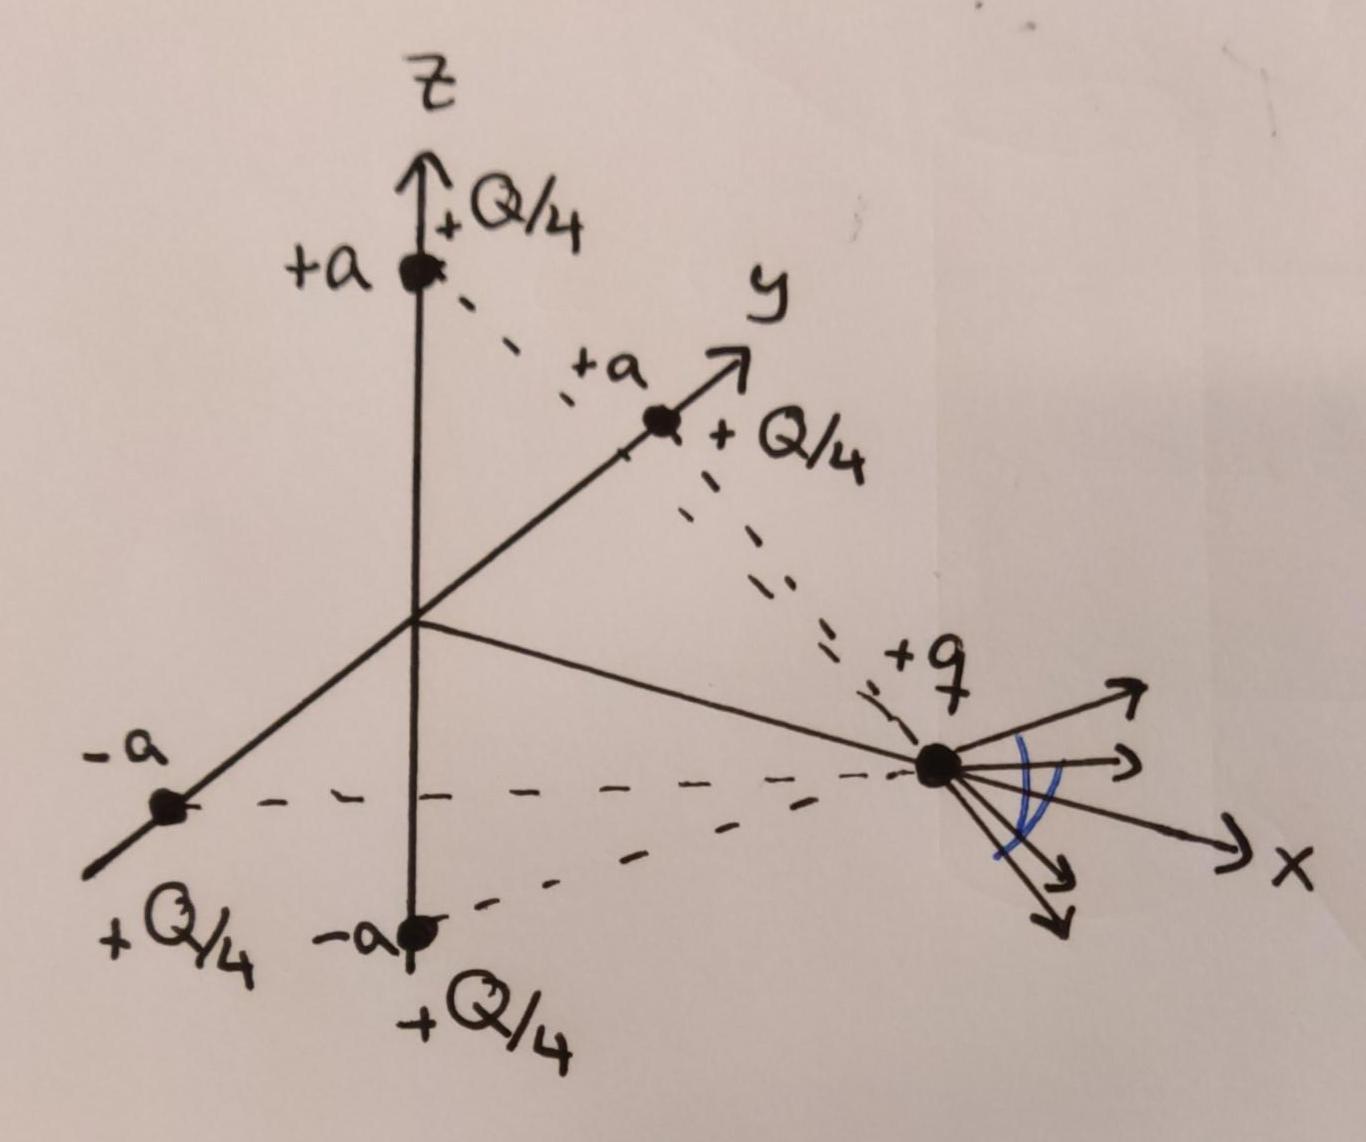 z
+ Q/4
+a
y
+a
+ Q/4
+q
-a
x
+ Q/4
-a
+ Q/4